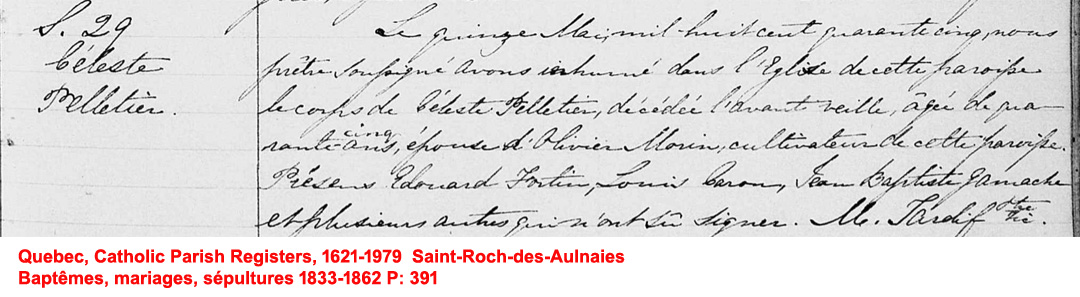 S. 29
Céleste
Pelletier.
Le quinze Mai, mil-huit cent quarante cinq, nous
prêtre soussigné avons inhumé dans l'Eglise de cette paroisse
le corps de Céleste Pelletier, décédée l'avant veille, âgée de qua-
rante cinq ans, épouse d'Olivier Morin, cultivateur de cette paroisse.
Présens Edouard Fortin, Louis Caron, Jean Baptiste Gamache
et plusieurs autres qui n'ont sû signer. M. Tardif Ptre
Quebec, Catholic Parish Registers, 1621-1979 Saint-Roch-des-Aulnaies
Baptêmes, mariages, sépultures 1833-1862 P: 391